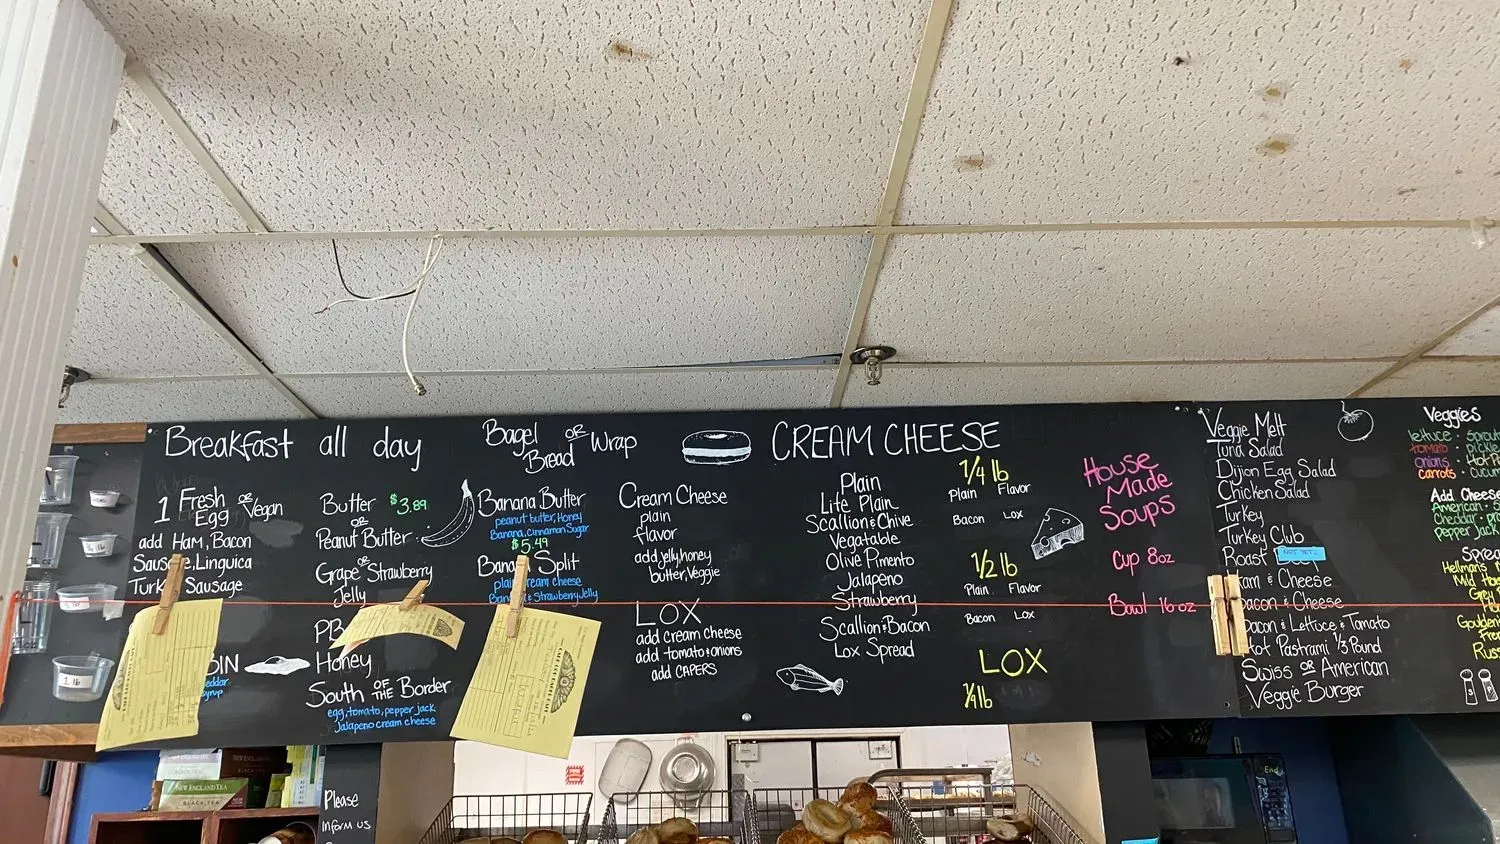 Breakfast all day
1 Fresh Egg or Vegan
add Ham, Bacon
Sausage, Linguica
Sausage
Butter $3.89
or
Peanut Butter
Grape or Strawberry
Jelly
Honey
South OF THE Border
egg, tomato, pepper jack
Jalapeno cream cheese
Bagel or Wrap
Bread
Banana Butter
peanut butter, Honey
Banana, Cinnamon Sugar
$5.49
Split
cream cheese
Strawberry Jelly
Cream Cheese
plain
flavor
add jelly, honey
butter, Veggie
LOX
add cream cheese
add tomato & onions
add CAPERS
CREAM CHEESE
Plain
Lite Plain
Scallion & Chive
Vegatable
Olive Pimento
Jalapeno
Strawberry
Scallion & Bacon
Lox Spread
1/4 lb
Plain Flavor
Bacon Lox
1/2 lb
Plain Flavor
Bacon Lox
LOX
1/4 lb
House
Made
Soups
Cup 8oz
Bowl 16 oz
Veggie Melt
Tuna Salad
Dijon Egg Salad
Chicken Salad
Turkey
Turkey Club
Roast
NOT YET
& Cheese
& Cheese
& Lettuce & Tomato
Pastrami 1/3 Pound
Swiss or American
Veggie Burger
Veggies
lettuce
tomato
onions
carrots
Add Cheese
American
Cheddar
pepper jack
Hellman's
1 lb
NEW ENGLAND TEA
BLACK TEA
Please
INFORM US
End